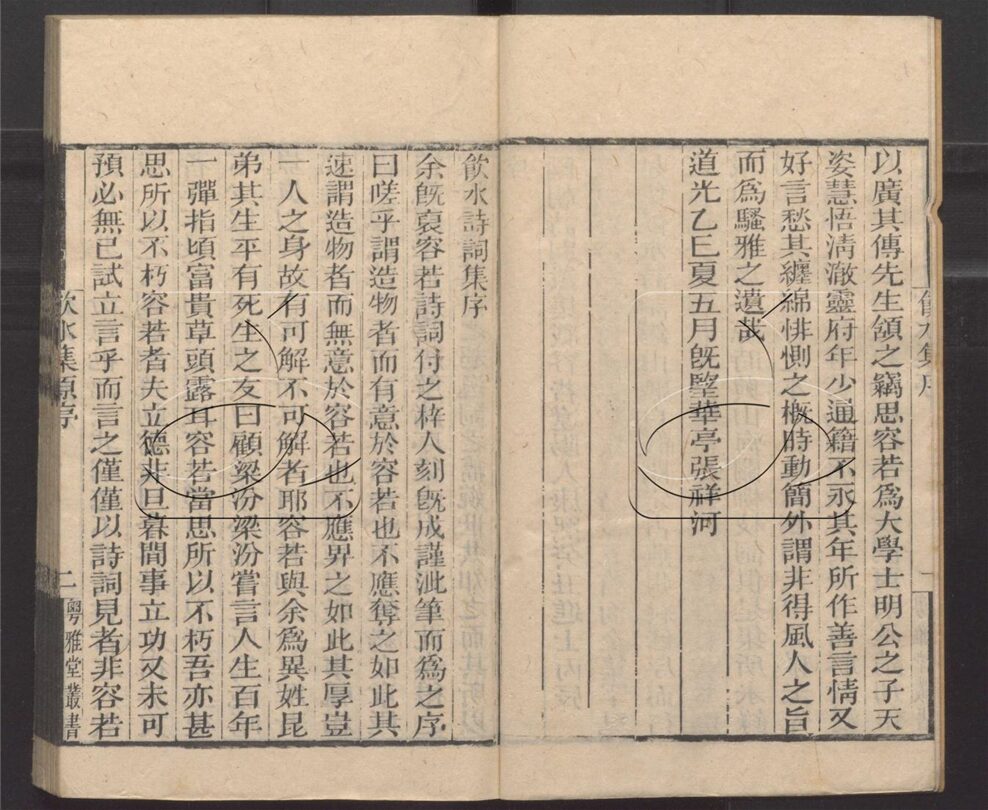 以廣其傳先生頷之竊思容若爲大學士明公之子天
姿慧悟清澈靈府年少通籍不永其年所作善言情又
好言愁其纏綿悱惻之概時動簡外謂非得風人之旨
而爲騷雅之遺哉
道光乙巳夏五月旣朢華亭張祥河
飮水詩詞集序
余旣裒容若詩詞付之梓人刻旣成謹泚筆而爲之序
曰嗟乎謂造物者而有意於容若也不應奪之如此其
速謂造物者而無意於容若也不應畀之如此其厚豈
一人之身故有可解不可解者耶容若與余爲異姓昆
弟其生平有死生之友曰顧梁汾梁汾嘗言人生百年
一彈指頃富貴草頭露耳容若當思所以不朽吾亦甚
思所以不朽容若者夫立德非旦暮間事立功又未可
預必無已試立言乎而言之僅僅以詩詞見者非容若
飮水集原序
二
粵雅堂叢書